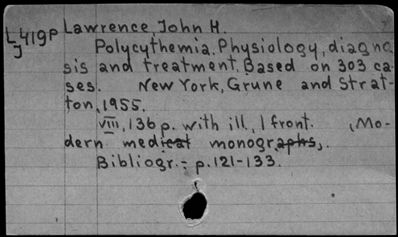 L419p Lawrence, John H.
J
Polycythemia. Physiology, diagno
sis and treatment. Based on 303 ca-
ses. New York, Grune and Strat-
ton, 1955.
VIII, 136 p. with ill., 1 front. (Mo-
dern medical monographs).
Bibliogr.: p. 121-133.